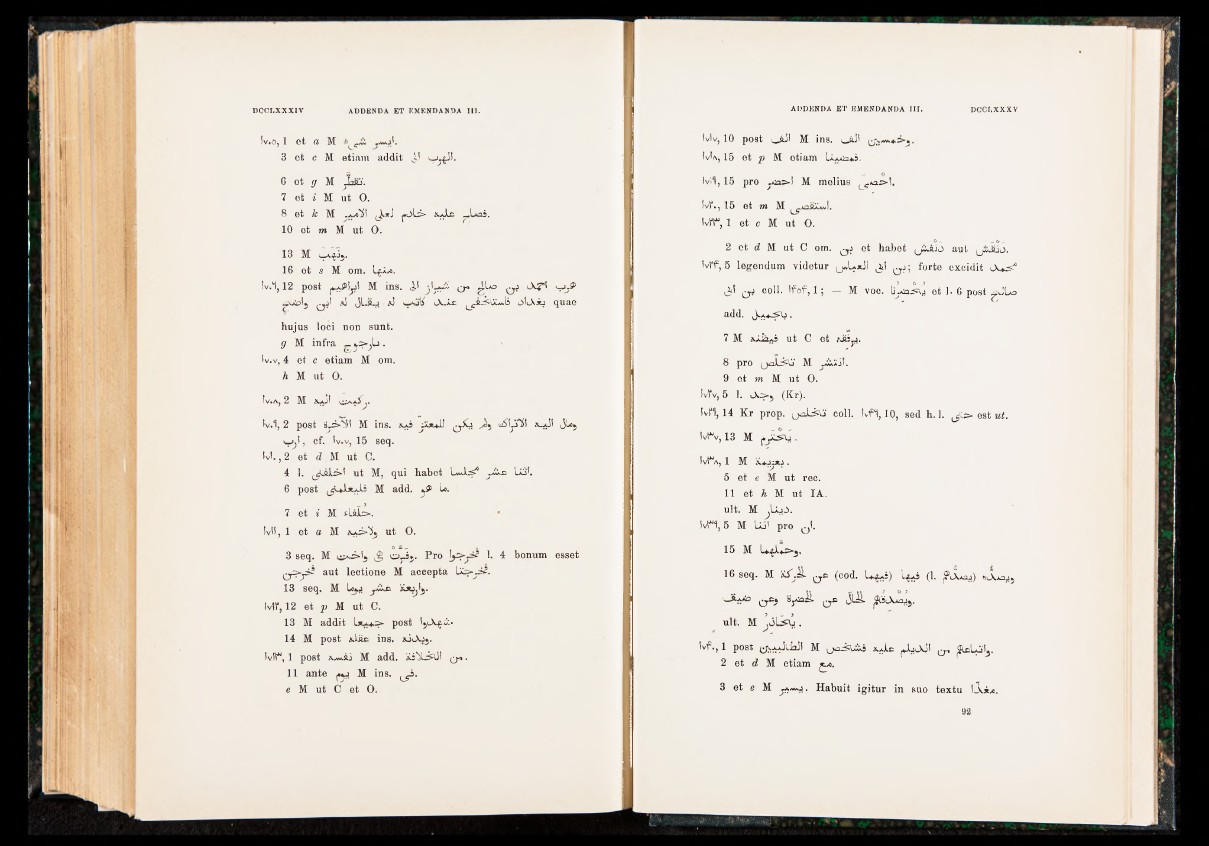 DCCLXXXIV ADDENDA ET EMENDANDA III.
١٧٠٥, 1 et a M ايسر شىء.
3 et c M etiam addit الهرب الى.
6 et g M تقطر.
7 et i M ut O.
8 et k M فصلح عليه خادم لعلى الامير.
10 et m M ut O.
13 M ونهب.
16 et s M om. منها.
١٧٠٦, 12 post ابراهيم M ins. هرب احمد بن صالح من شيراز الى
بغداد فاستخفى عند كاتب له يقال له ابن واضح quae
hujus loci non sunt.
g M infra بارجوج.
١٧٠٧, 4 et c etiam M om.
h M ut O.
١٧٠٨, 2 M ركبت اليه.
١٧٠٩, 2 post الآخرة M ins. ومال اليه الاتراك ولم يكن للمعتز فيه
ارب, cf. ١٧٠٧, 15 seq.
١٧١٠, 2 et d M ut C.
4 l. اخلفنى ut M, qui habet اتنا عشر مجلسا.
6 post فليعلمنى M add. ما هو.
7 et i M خلفاء.
١٧١١, 1 et a M ولاخيه ut O.
3 seq. M وفرت فى واخت. Pro فخرجوا l. 4 bonum esset
فخرجن aut lectione M accepta فخرجتا.
13 seq. M واربعة عشر يوما.
١٧١٢, 12 et p M ut C.
13 M addit جميعا post شهدوا.
14 M post عقله ins. وبدنه.
١٧١٣, 1 post نفسه M add. من الخلافة.
11 ante يوم M ins. فى.
e M ut C et O.
ADDENDA ET EMENDANDA III. DCCLXXXV
١٧١٧, 10 post الف M ins. وخمسين الف.
١٧١٨, 15 et p M etiam فمضينا.
١٧١٩, 15 pro احضر M melius احصى.
١٧٢٠, 15 et m M استقصى.
١٧٢٣, 1 et c M ut O.
2 et d M ut C om. بن et habet دنقش aut دنقش.
١٧٢٤, 5 legendum videtur بن ابى العباس; forte excidit محمد
بن ابى coll. ١٤٥٤, 1; — M voc. باحضرنا et l. 6 post صالح
add. بالجميل.
7 M فيظنه ut C et يرفقه.
8 pro تخلص M انتشر.
9 et m M ut O.
١٧٢٧, 5 l. وجد (Kr).
١٧٢٩, 14 Kr prop. تخلص coll. ١٧٤٩, 10, sed h. l. حتى est ut.
١٧٣٧, 13 M يخترم.
١٧٣٨, 1 M بغيمة.
5 et e M ut rec.
11 et h M ut IA.
ult. M دينار.
١٧٣٩, 5 M اننا pro ان.
15 M وحملها.
16 seq. M ويصده (l. ويصدهم) فيها (cod. فيهما) عن الحركة
ويصدفهم عن الحال عن الحضرة وعن ضيف.
ult. M يحاذر.
١٧٤٠, 1 post الطالبيين M واتباعهم من الديلم عليه فشخص
2 et d M etiam مع.
3 et e M يسير. Habuit igitur in suo textu مغذا.
92